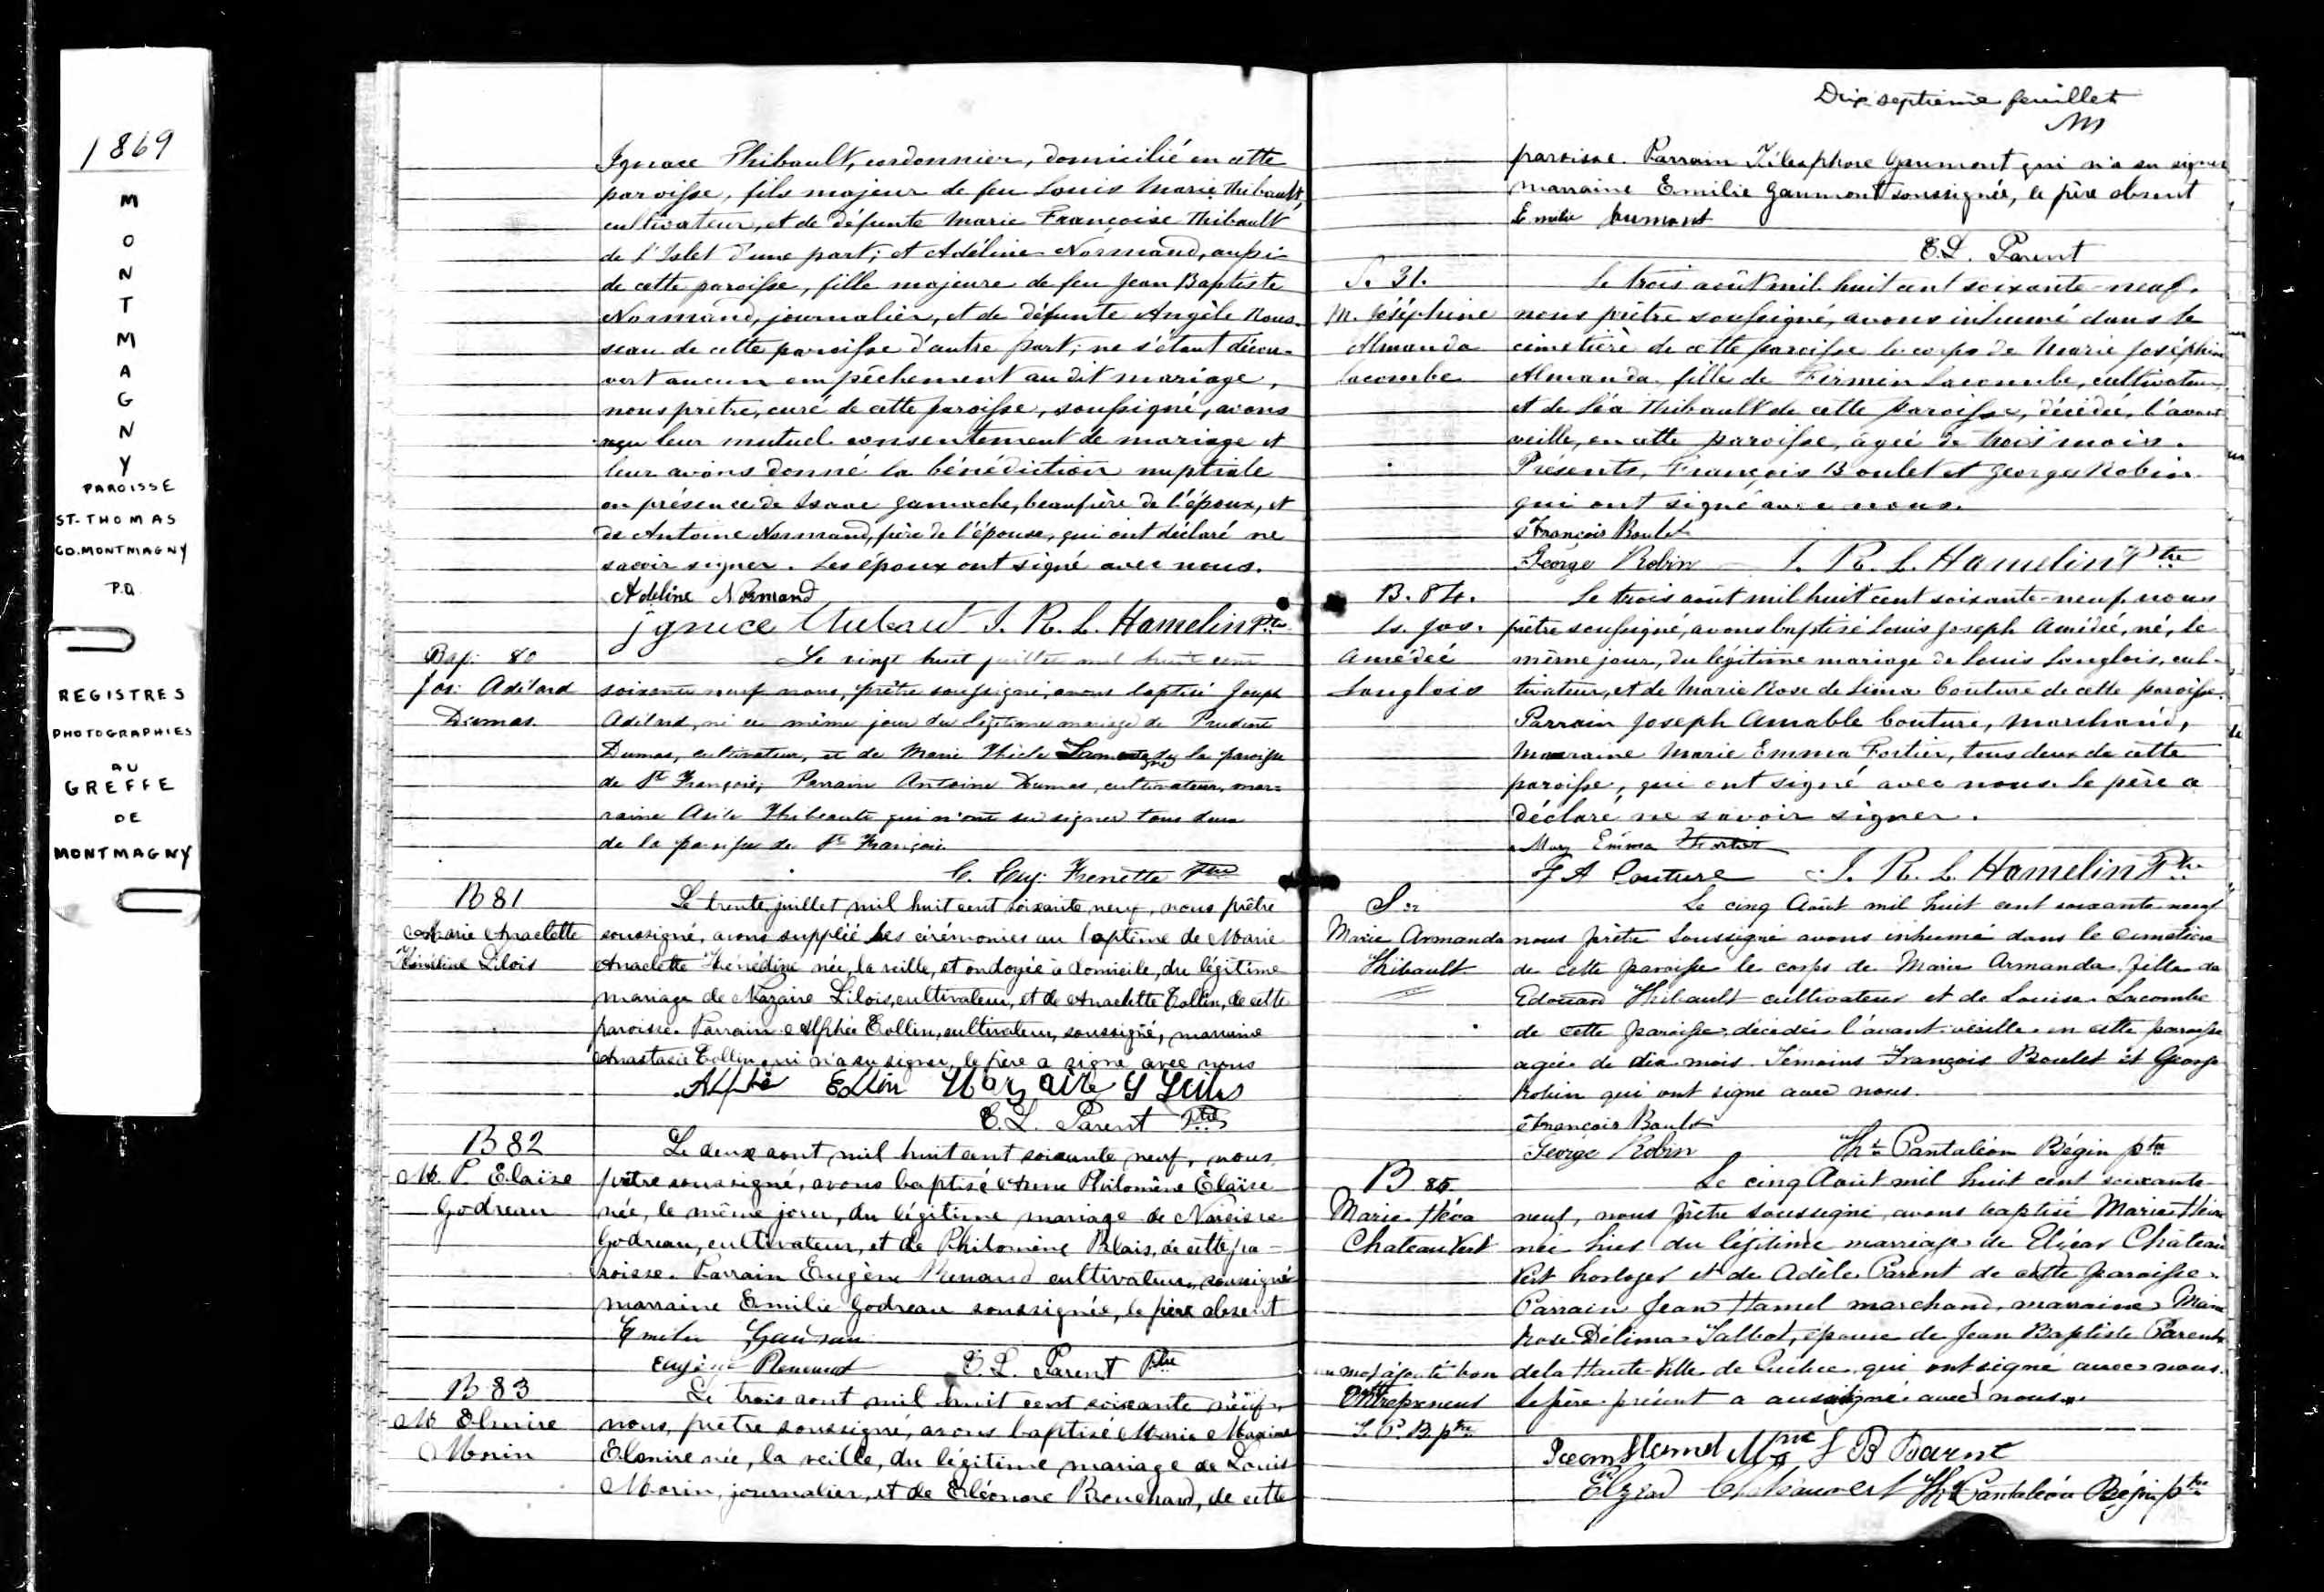 1869
M
O
N
T
M
A
G
N
Y
PAROISSE
ST-THOMAS
CO. MONTMAGNY
P.Q.
REGISTRES
PHOTOGRAPHIES
AU
GREFFE
DE
MONTMAGNY
Ignace Thibault, cordonnier, domicilié en cette
paroisse, fils majeur de feu Louis Marie Thibault,
cultivateur, et de défunte Marie Françoise Thibault
de l'Islet d'une part; et Adéline Normand, aussi
de cette paroisse, fille majeure de feu Jean Baptiste
Normand, journalier, et de défunte Angèle Rous-
seau de cette paroisse d'autre part; ne s'étant décou-
vert aucun empêchement au dit mariage,
nous prêtre, curé de cette paroisse, soussigné, avons
reçu leur mutuel consentement de mariage et
leur avons donné la bénédiction nuptiale
en présence de Isaac Gamache, beaufrère de l'époux, et
de Antoine Normand, frère de l'épouse, qui ont déclaré ne
savoir signer. Les époux ont signé avec nous.
Adéline Normand
J. R. L. Hamelin Ptre
Bap. 80
Jos. Adélard
Dumas
Le vingt huit juillet mil huit cent
soixante neuf nous, prêtre soussigné, avons baptisé Joseph
Adélard, né ce même jour du légitime mariage de Prudent
Dumas, cultivateur, et de Marie Thècle de la paroisse
de St François; Parrain Antoine Dumas, cultivateur, mar-
raine Thibeault qui n'ont su signer tous deux
de la paroisse de St François
Frenette Ptre
B 81
Marie Anaclette
Lilois
Le trente juillet mil huit cent soixante neuf, nous prêtre
soussigné, avons suppléé les cérémonies au baptême de Marie
Anaclette née, la veille, et ondoyée à domicile, du légitime
mariage de Nazaire Lilois, cultivateur, et de Anaclette Collin, de cette
paroisse. Parrain Alphée Collin, cultivateur, soussigné, marraine
Anastasie Collin qui n'a su signer, le père a signé avec nous
E. L. Parent Ptre
B 82
M. P. Elaïse
Godreau
Le deux aout mil huit cent soixante neuf, nous
prêtre soussigné, avons baptisé Philomène Elaïse
née, le même jour, du légitime mariage de Narcisse
Godreau, cultivateur, et de Philomène Blais, de cette pa-
roisse. Parrain Eugène Renaud cultivateur, soussigné
marraine Emilie Godreau soussignée, le père absent
Eugène Renaud E. L. Parent Ptre
B 83
M Elmire
Morin
Le trois aout mil huit cent soixante neuf,
nous, prêtre soussigné, avons baptisé Marie
Elmire née, la veille, du légitime mariage de Louis
Morin, journalier, et de Eléonore Bouchard, de cette
Dix septième feuillet
paroisse. Parrain Télesphore Gaumont qui n'a su signer
marraine Emilie Gaumont soussignée, le père absent
E. L. Parent
S. 31.
M. Joséphine
Almanda
Lacombe
Le trois août mil huit cent soixante-neuf,
nous prêtre soussigné, avons inhumé dans le
cimetière de cette paroisse le corps de Marie Joséphine
Almanda fille de Firmin Lacombe, cultivateur,
et de Léa Thibault de cette paroisse, décédée, l'avant
veille, en cette paroisse, agée de trois mois.
Présents, François Boulet et George Robin
qui ont signé avec nous.
François Boulet
George Robin J. R. L. Hamelin Ptre
B. 84.
Ls. Jos.
Amédée
Langlois
Le trois août mil huit cent soixante-neuf, nous
prêtre soussigné, avons baptisé Louis Joseph Amédée, né, le
même jour, du légitime mariage de Louis Langlois, cul-
tivateur, et de Marie Rose de Lima Couture de cette paroisse.
Parrain Joseph Amable Couture, marchand,
marraine Marie Emma Fortier, tous deux de cette
paroisse, qui ont signé avec nous. Le père a
déclaré ne savoir signer.
Mary Emma Fortier
J A Couture J. R. L. Hamelin Ptre
Marie Armanda
Thibault
Le cinq Août mil huit cent soixante neuf
nous prêtre soussigné avons inhumé dans le cimetière
de cette paroisse le corps de Marie Armanda, fille de
Edouard Thibault cultivateur et de Louise Lacombe
de cette paroisse, décédée l'avant-veille en cette paroisse
agée de dix mois. Témoins François Boulet et George
Robin qui ont signé avec nous.
François Boulet
George Robin Pantaléon Bégin ptre
B 85
Marie-
Chateauvert
Le cinq Août mil huit cent soixante
neuf, nous prêtre soussigné, avons baptisé Marie
née hier du légitime marriage de Elzéar Château
vert horloger et de Adèle Parent de cette paroisse.
Parrain Jean Hamel marchand, marraine Marie
Rose Délima Talbot, épouse de Jean Baptiste Parent
de la Haute-Ville de Québec qui ont signé avec nous.
un mot ajouté bon
Entrepreneur
Le père présent a aussi signé avec nous
Jean Hamel Mme J B Parent
Elzéar Chateauvert Pantaléon Bégin ptre